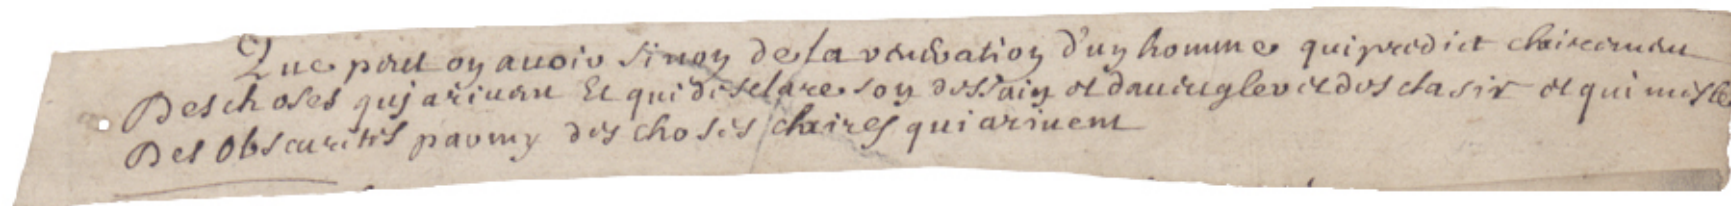 Que peut on auoir sinon de la veneration d'un homme qui predict clairemen
Des choses quj ariuen Et qui desclare son dessain et daueugler et desclasir et qui mesle
Des Obscurites parmy des choses claires qui ariuent